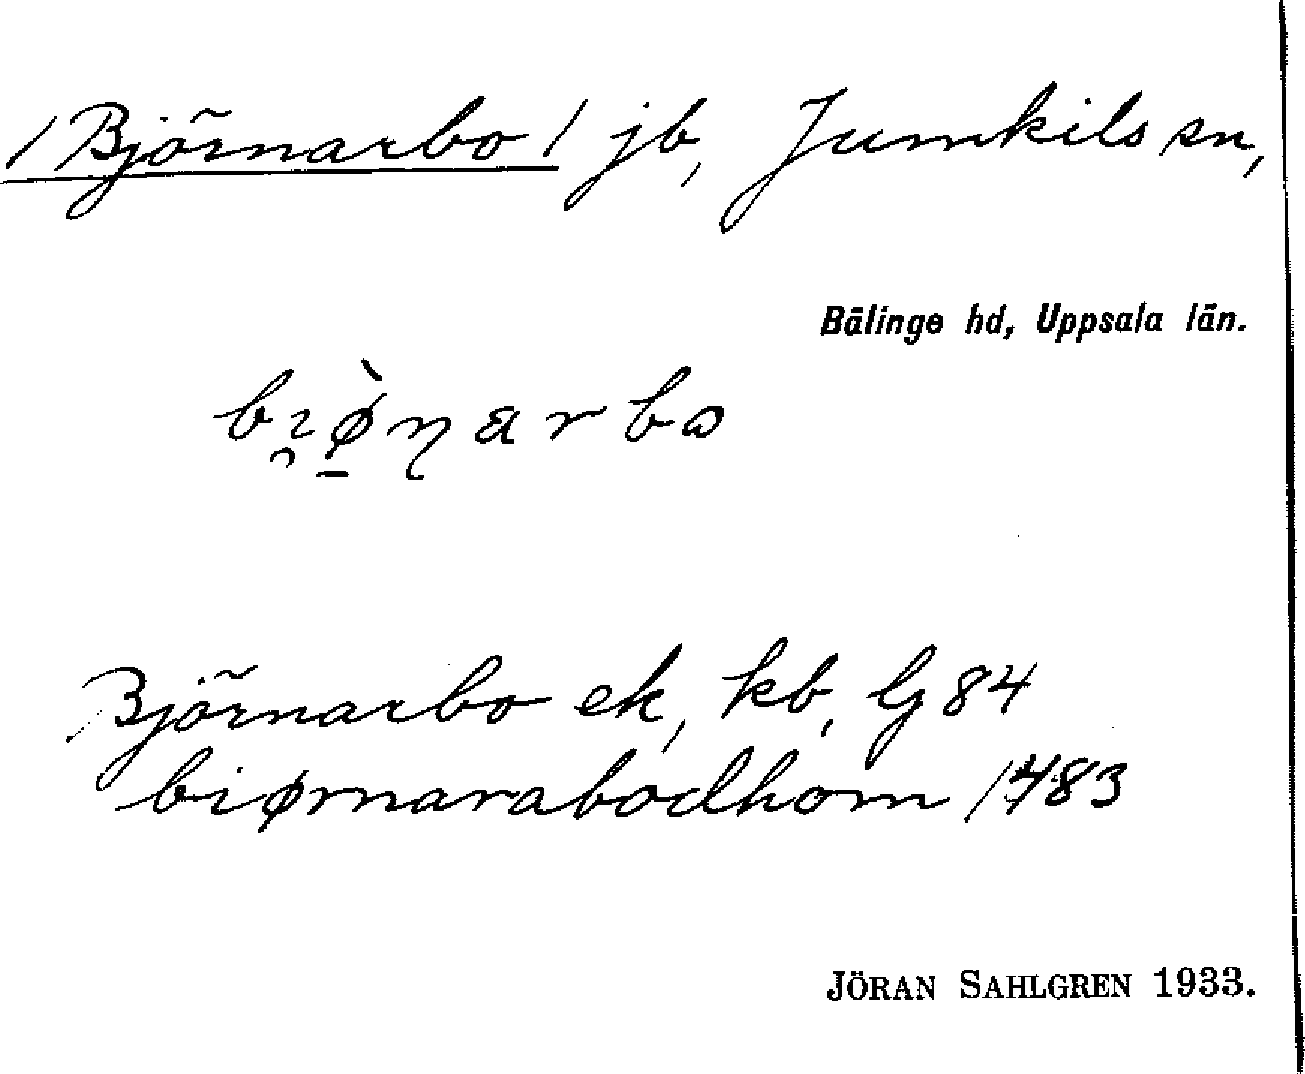 /Björnarbo/ jb, Jumkils sn,
Bälinge hd, Uppsala län.
bı̯ø̠̀ɳarbω
Björnarbo ek, kb, lj 84
biørnarabodhom 1483
JÖRAN SAHLGREN 1933.